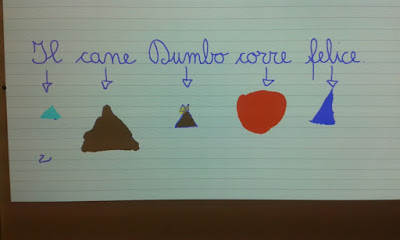 Il cane Dumbo corre felice.